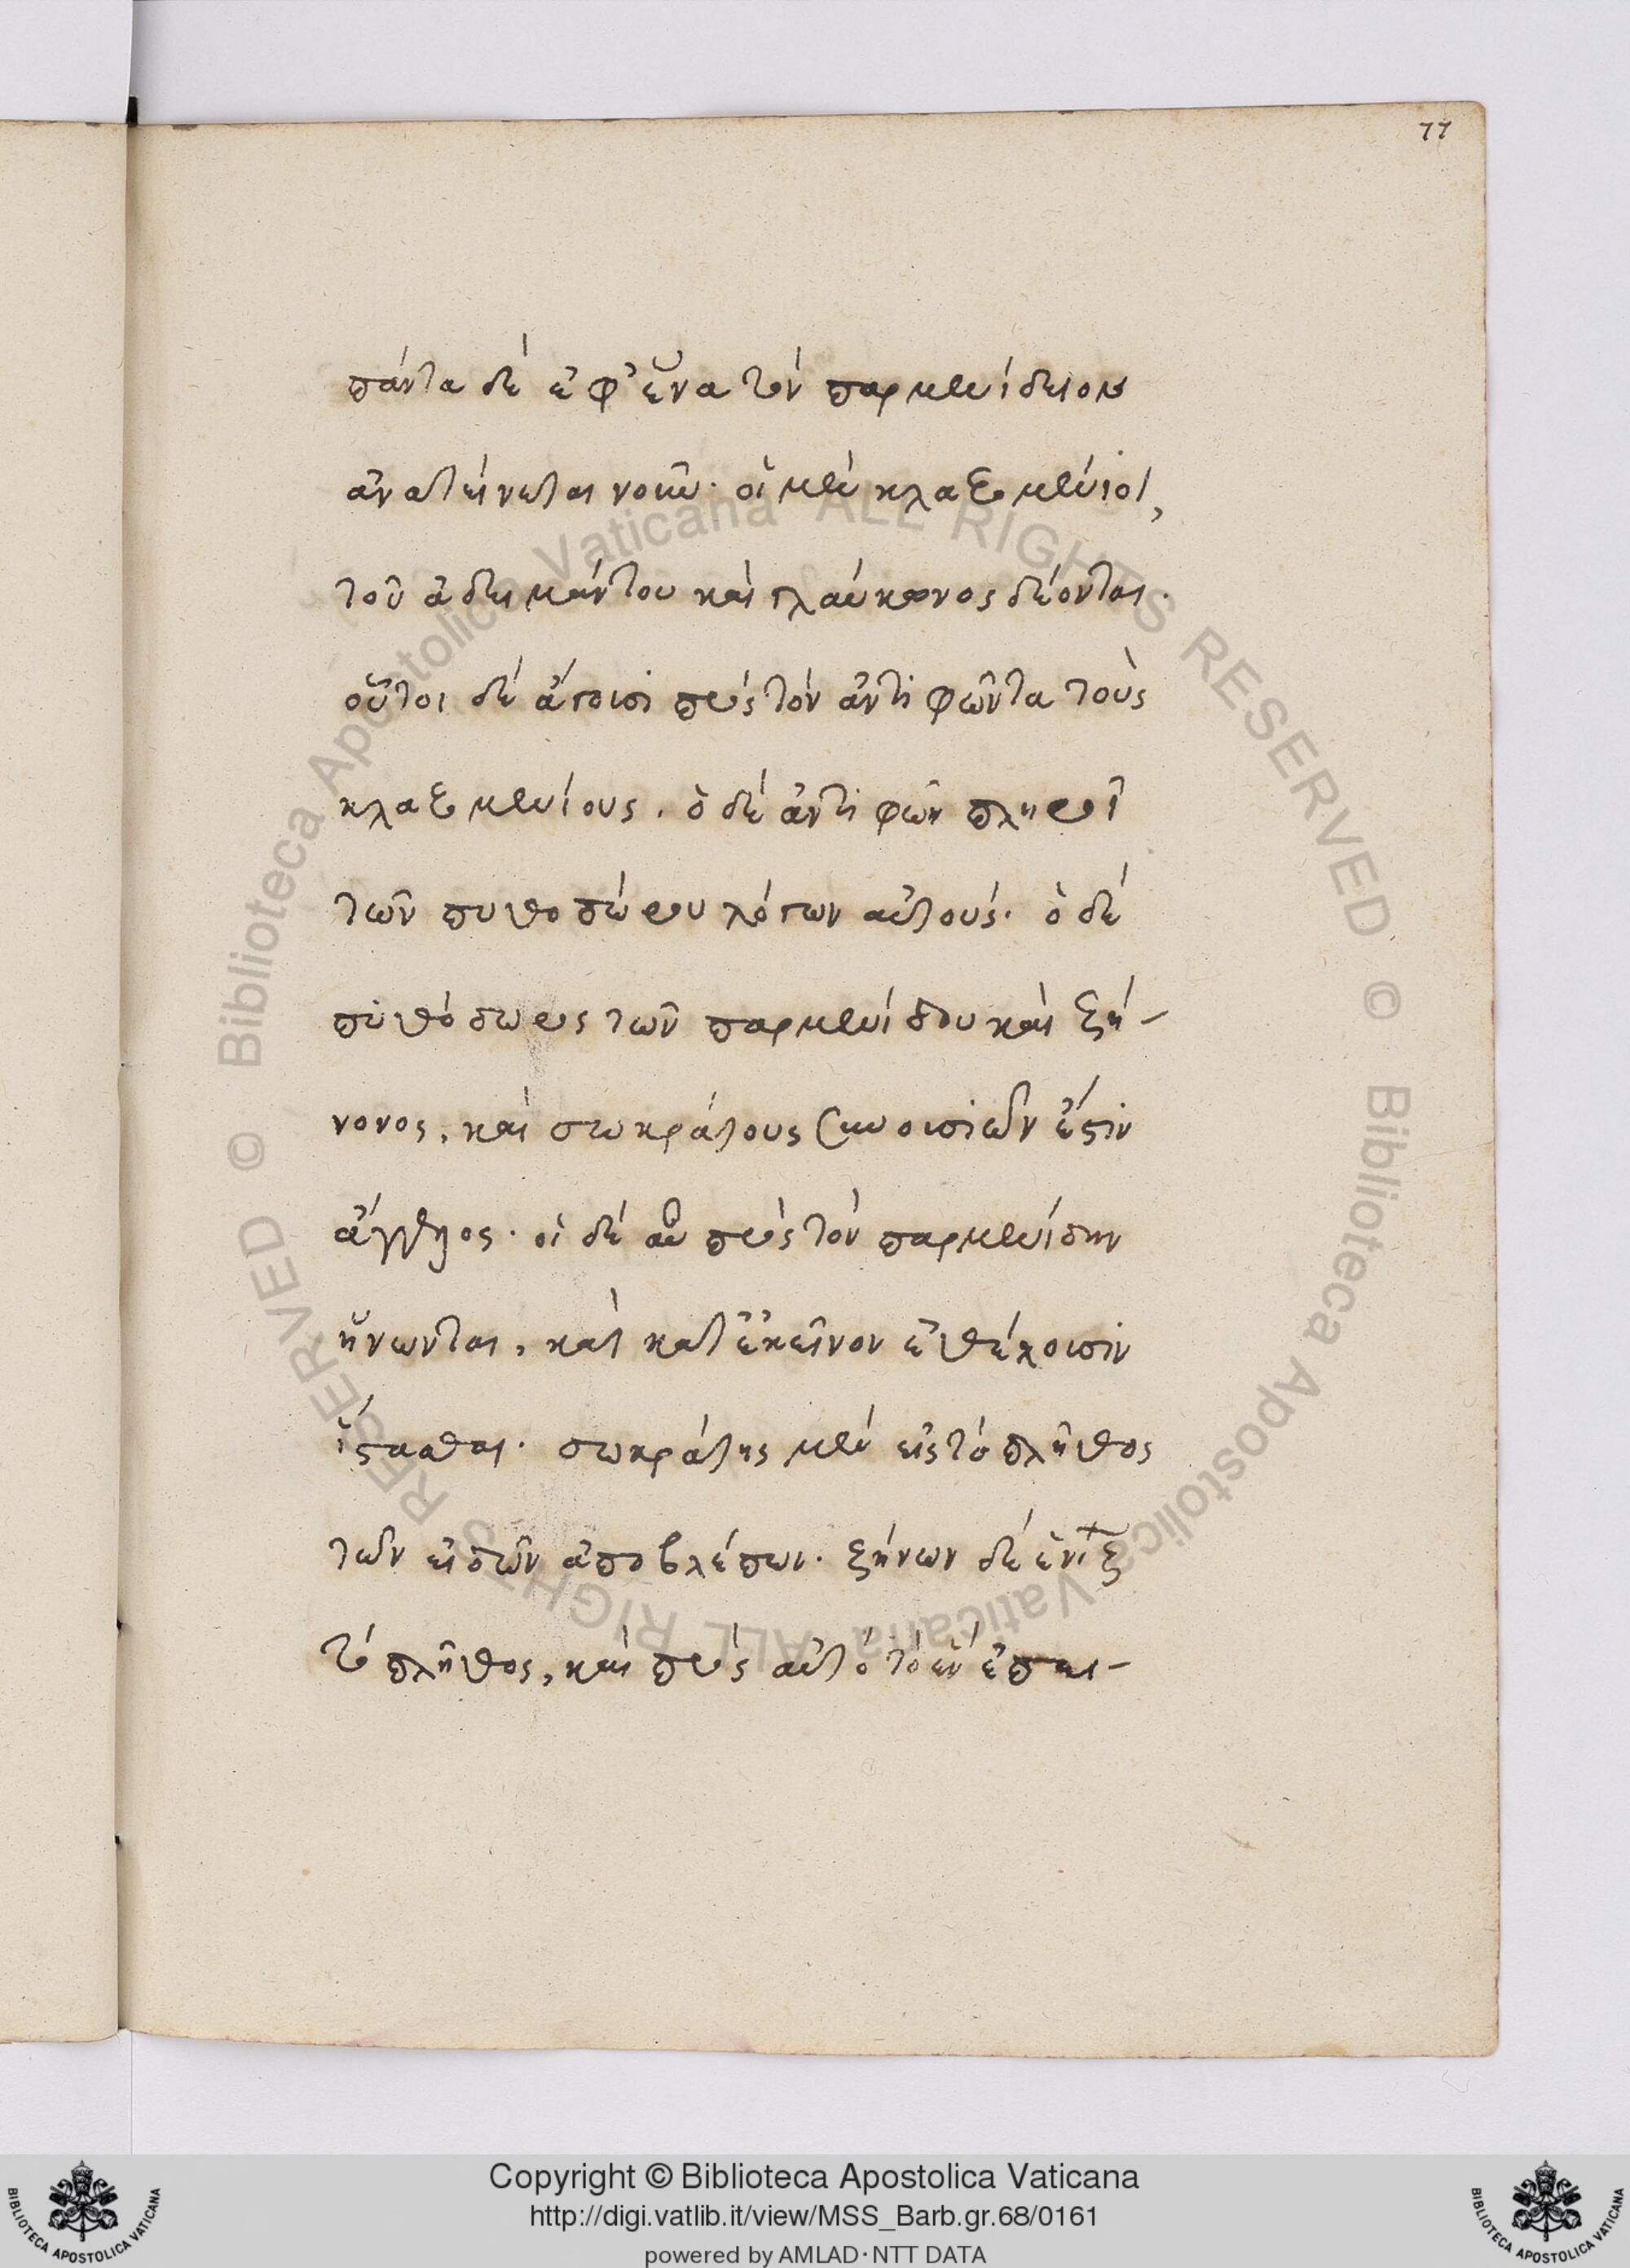 77
πάντα δὲ ἐφ' ἕνα τὸν παρμενίδειον
ἀνατείνεται νοῦν· οἱ μὲν κλαζομένιοι,
τοῦ ἀδειμάντου καὶ γλαύκωνος δέονται·
οὗτοι δὲ ἄγουσι πρὸς τὸν ἀντιφῶντα τοὺς
κλαζομενίους. ὁ δὲ ἀντιφῶν πληροῖ
τῶν πυθοδώρου λόγων αὐτούς· ὁ δὲ
πυθόδωρος τῶν παρμενίδου καὶ ζή-
νονος, καὶ σωκράτους συνουσιῶν ἐστὶν
ἄγγελος· οἱ δὲ αὖ πρὸς τὸν παρμενίδην
ἥνωνται, καὶ κατ' ἐκεῖνον ἐθέλουσιν
ἵστασθαι· σωκράτης μὲν εἰς τὸ πλῆθος
τῶν εἰδῶν ἀποβλέπων· ζήνων δὲ ἑνίζ
τὸ πλῆθος, καὶ πρὸς αὐτὸ τὸ ἓν ἐπει-
Copyright © Biblioteca Apostolica Vaticana
http://digi.vatlib.it/view/MSS_Barb.gr.68/0161
powered by AMLAD·NTT DATA
BIBLIOTECA APOSTOLICA VATICANA
BIBLIOTECA APOSTOLICA VATICANA
© Biblioteca Apostolica Vaticana ALL RIGHTS RESERVED
© Biblioteca Apostolica Vaticana ALL RIGHTS RESERVED